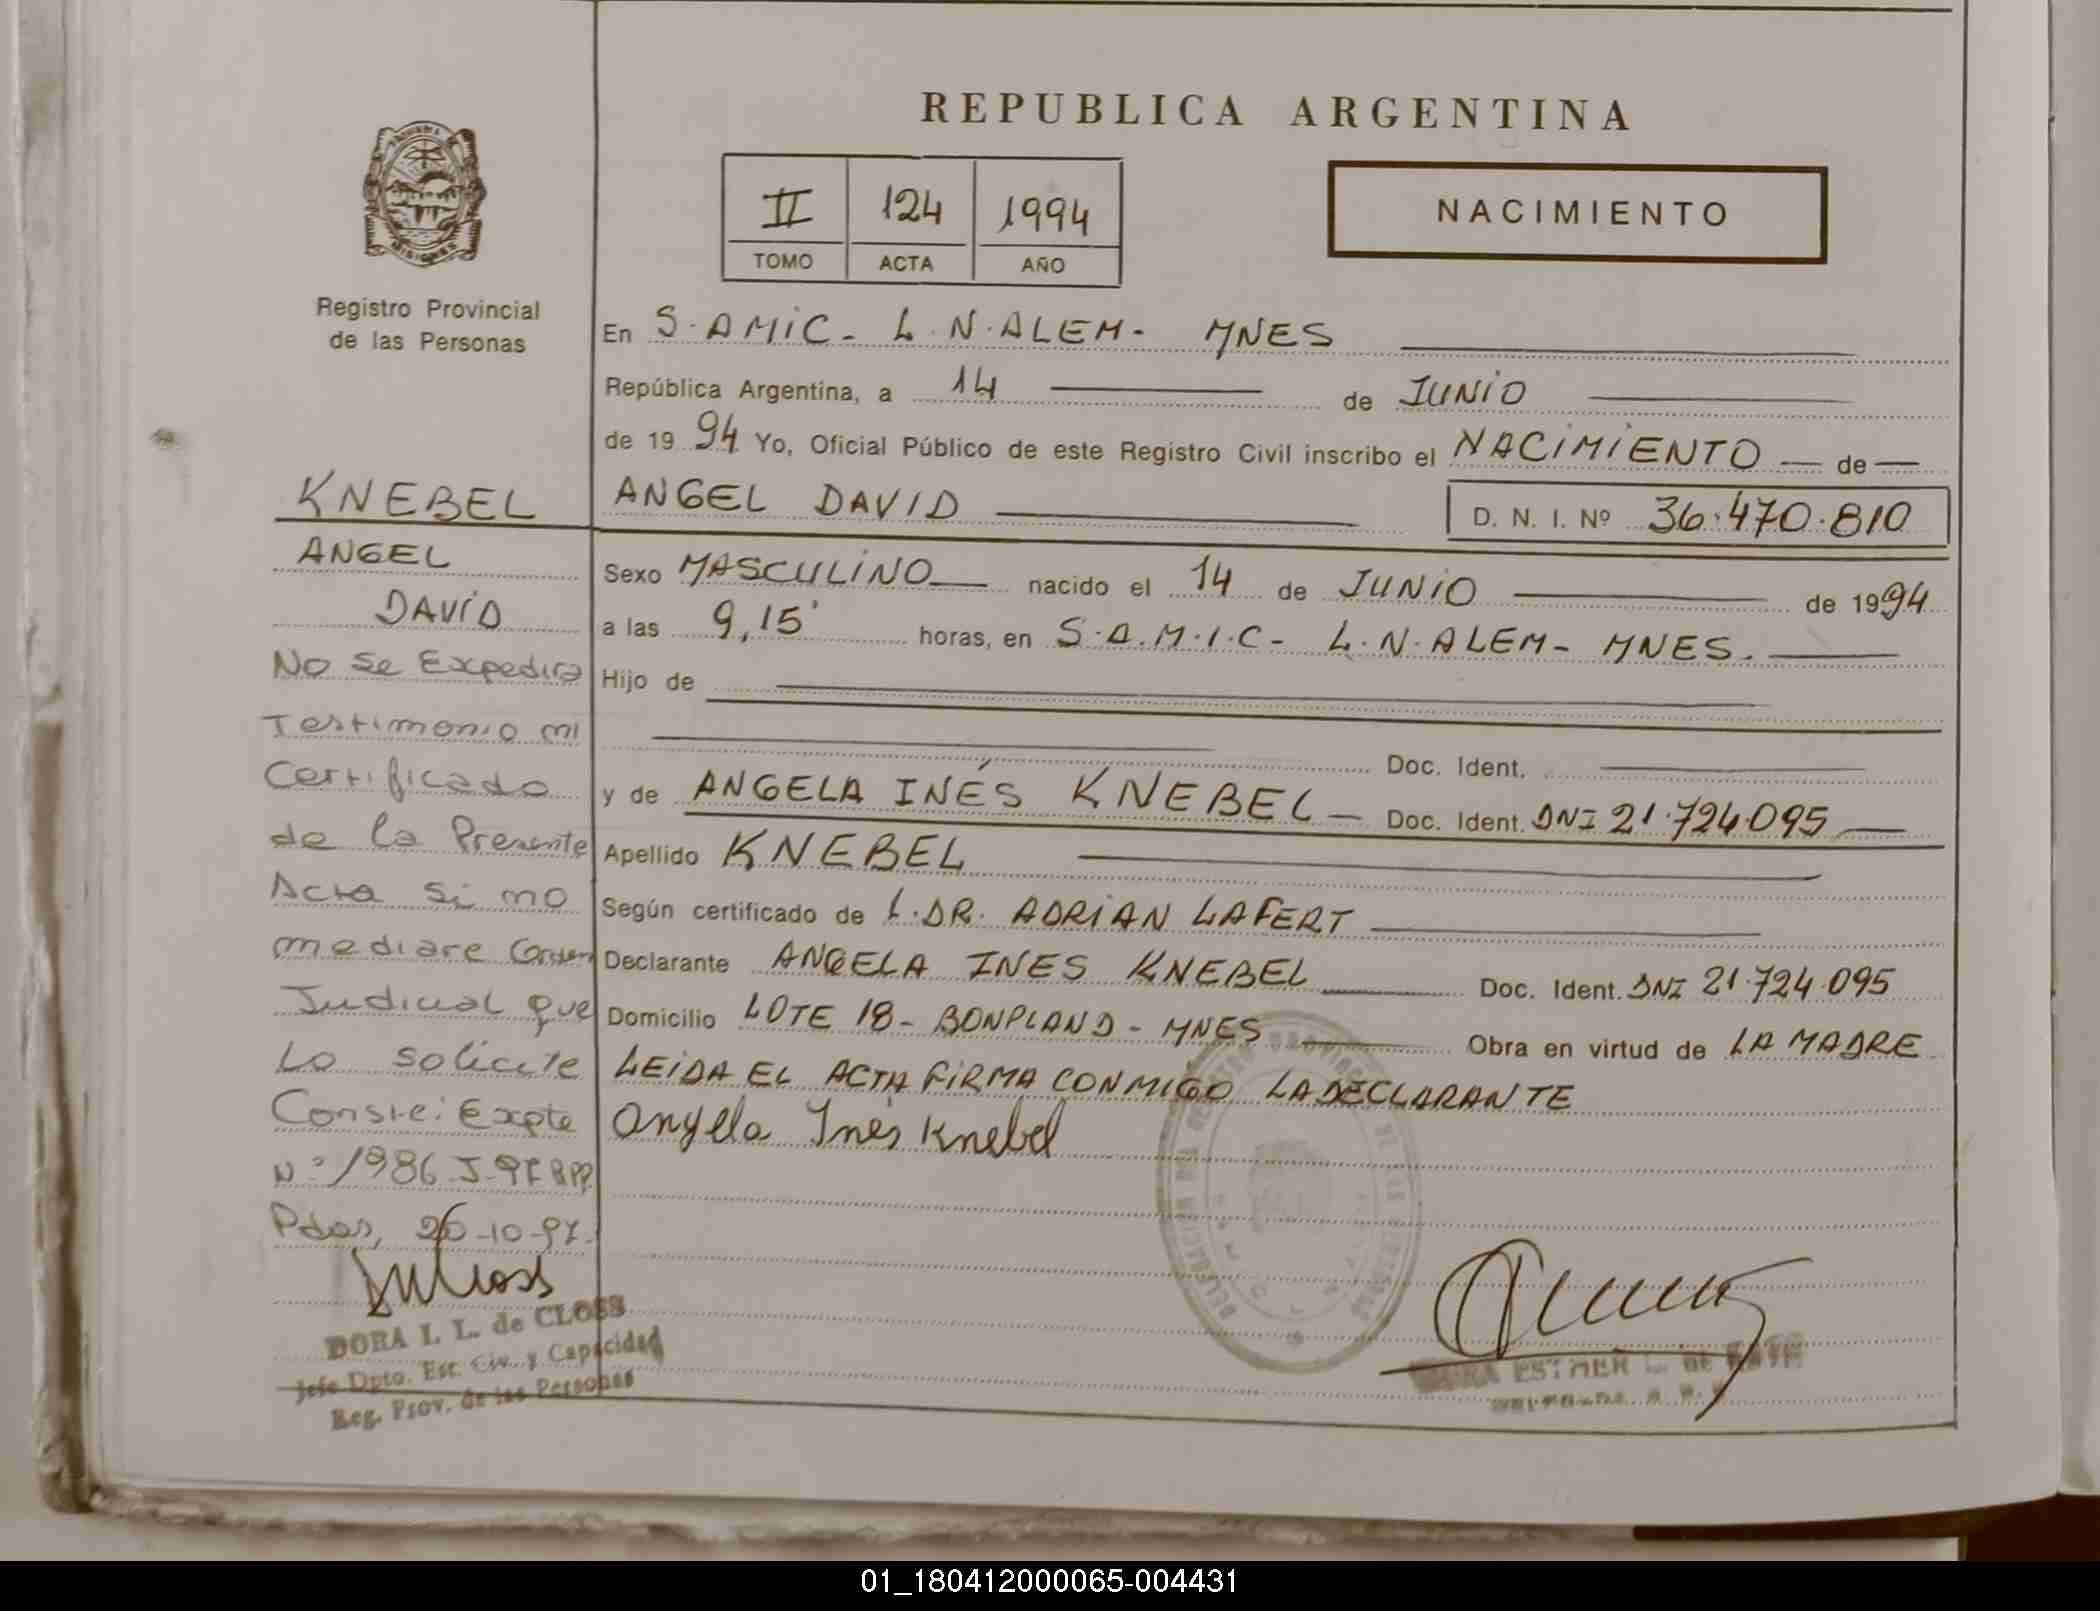 REPUBLICA ARGENTINA
MISIONES
Registro Provincial
de las Personas
II 124 1994
TOMO ACTA AÑO
NACIMIENTO
En S.AMIC- L.N.ALEM- MNES
República Argentina, a 14 de JUNIO
de 1994 Yo, Oficial Público de este Registro Civil inscribo el NACIMIENTO de
ANGEL DAVID D. N. I. Nº 36.470.810
Sexo MASCULINO nacido el 14 de JUNIO de 1994
a las 9,15' horas, en S.A.M.I.C- L.N.ALEM- MNES.
Hijo de
Doc. Ident.
y de ANGELA INÉS KNEBEL Doc. Ident. DNI 21.724.095
Apellido KNEBEL
Según certificado de L.DR. ADRIAN LAFERT
Declarante ANGELA INES KNEBEL Doc. Ident. DNI 21.724.095
Domicilio LOTE 18- BONPLAND- MNES Obra en virtud de LA MADRE
LEIDA EL ACTA FIRMA CONMIGO LA DECLARANTE
Angela Inés Knebel
KNEBEL
ANGEL
DAVID
No Se Expedira
Testimonio ni
Certificado
de la Presente
Acta Si no
mediare Orden
Judicial que
Lo solicite
Conste: Expte
N:º 1986-J-97 RPP.
Pdas, 26-10-97.
DORA I. L. de CLOSS
Jefe Dpto. Est. Civ. y Capacidad
Reg. Prov. de las Personas
ESTHER L. DE
01_180412000065-004431